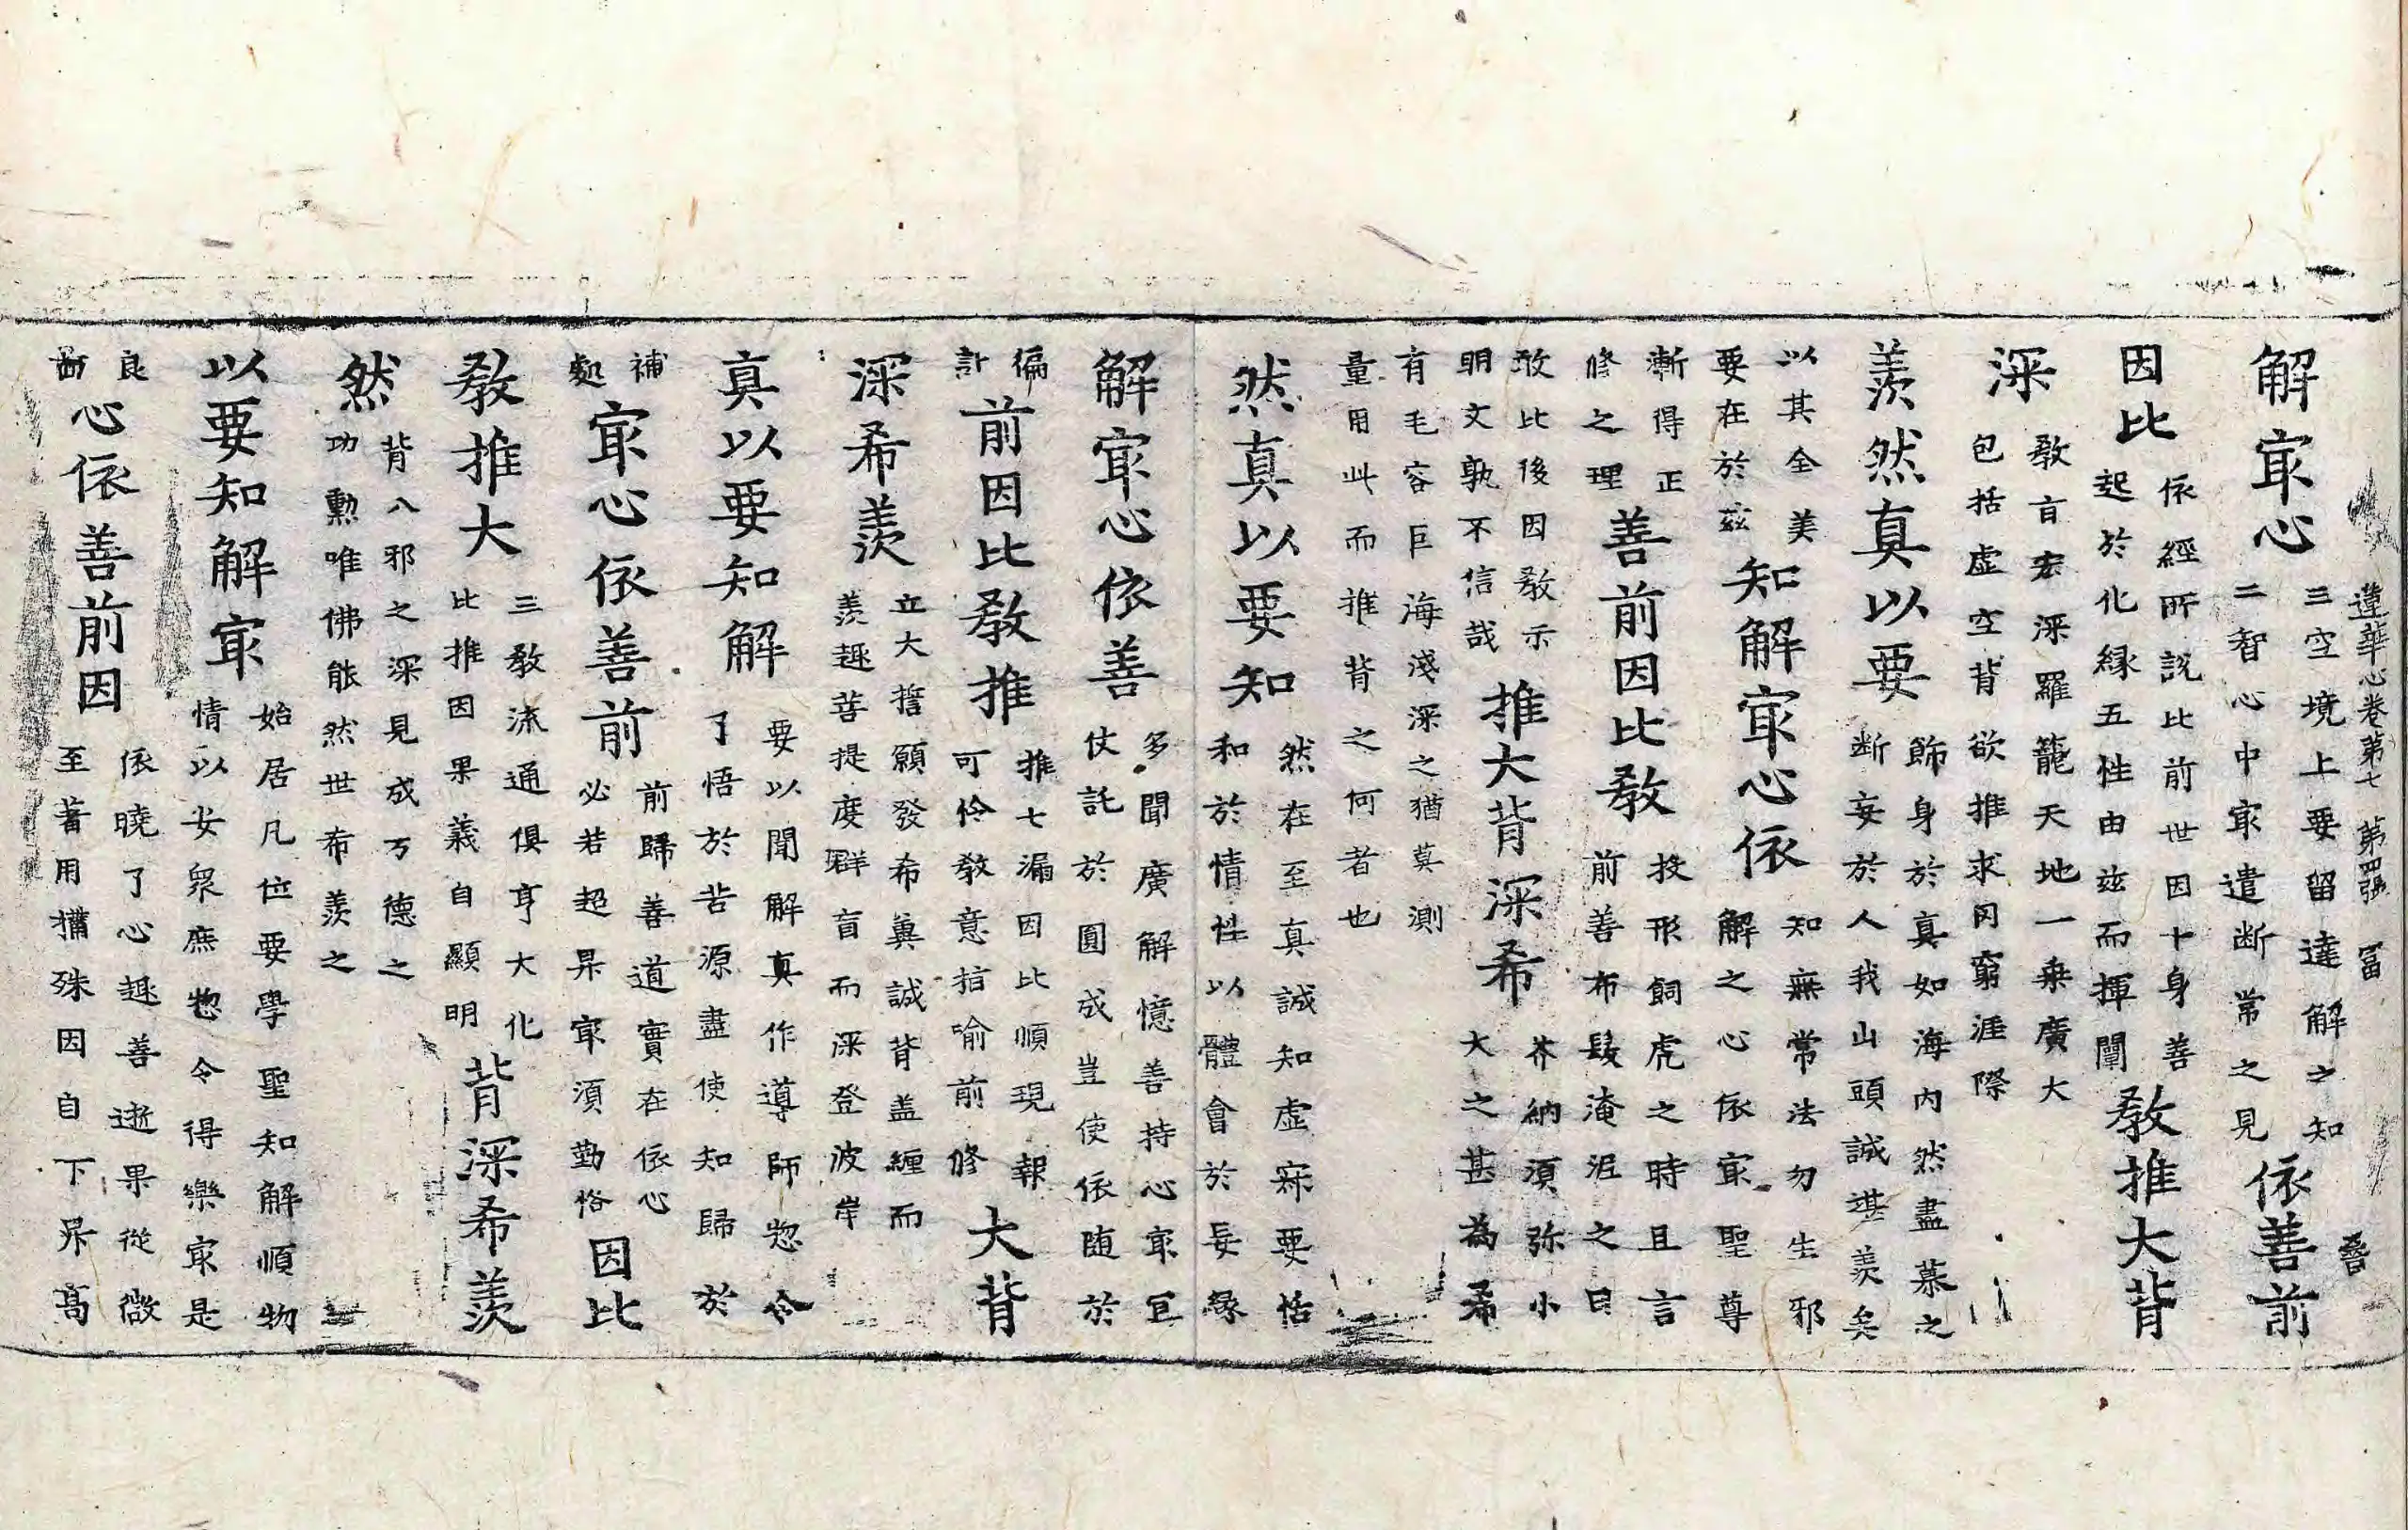 蓮華心卷第七　第四張　冨
解㝡心
三空境上要留達解之知
二智心中㝡遣断常之見
依善前
因比
依經所說比前世因十身善
起於化緣五性由玆而揮闡
教推大背
深
教言宏深羅籠天地一乗廣大
包括虛空背欲推求罔窮涯際
羨然真以要
飾身於真如海內然盡慕之
断妄於人我山頭誠堪羨矣
以其全美
要在於玆
知解㝡心依
知無常法勿生邪
解之心依㝡聖尊
漸得正
修之理
善前因比教
投形飼虎之時且言
前善布髮淹泥之日
敢比後因教示
明文孰不信哉
推大背深希
芥納須弥小
大之甚為希
有毛容巨海淺深之猶莫測
量用此而推背之何者也
然真以要知
然在至真誠知虛寂要恬
和於情性以體會於妄緣
解㝡心依善
多聞廣解憶善持心㝡宜
仗託於圓成豈使依随於
徧
計
前因比教推
推七漏因比順現報
可伶教意指喻前修
大背
深希羨
立大誓願發希冀誠背盖纏而
羨趣菩提度群盲而深登波岸
真以要知解
要以聞解真作導師惣令
了悟於苦源盡使知歸於
補
處
㝡心依善前
前歸善道實在依心
必若超昇㝡須勤恪
因比
教推大
三教流通俱亨大化
比推因果義自顯明
背深希羨
然
背八邪之深見成万德之
功勳唯佛能然世希羨之
以要知解㝡
始居凡位要學聖知解順物
情以安衆庶惣令得樂㝡是
良
心依善前因
依曉了心趣善逝果從微
至著用攝殊因自下昇高